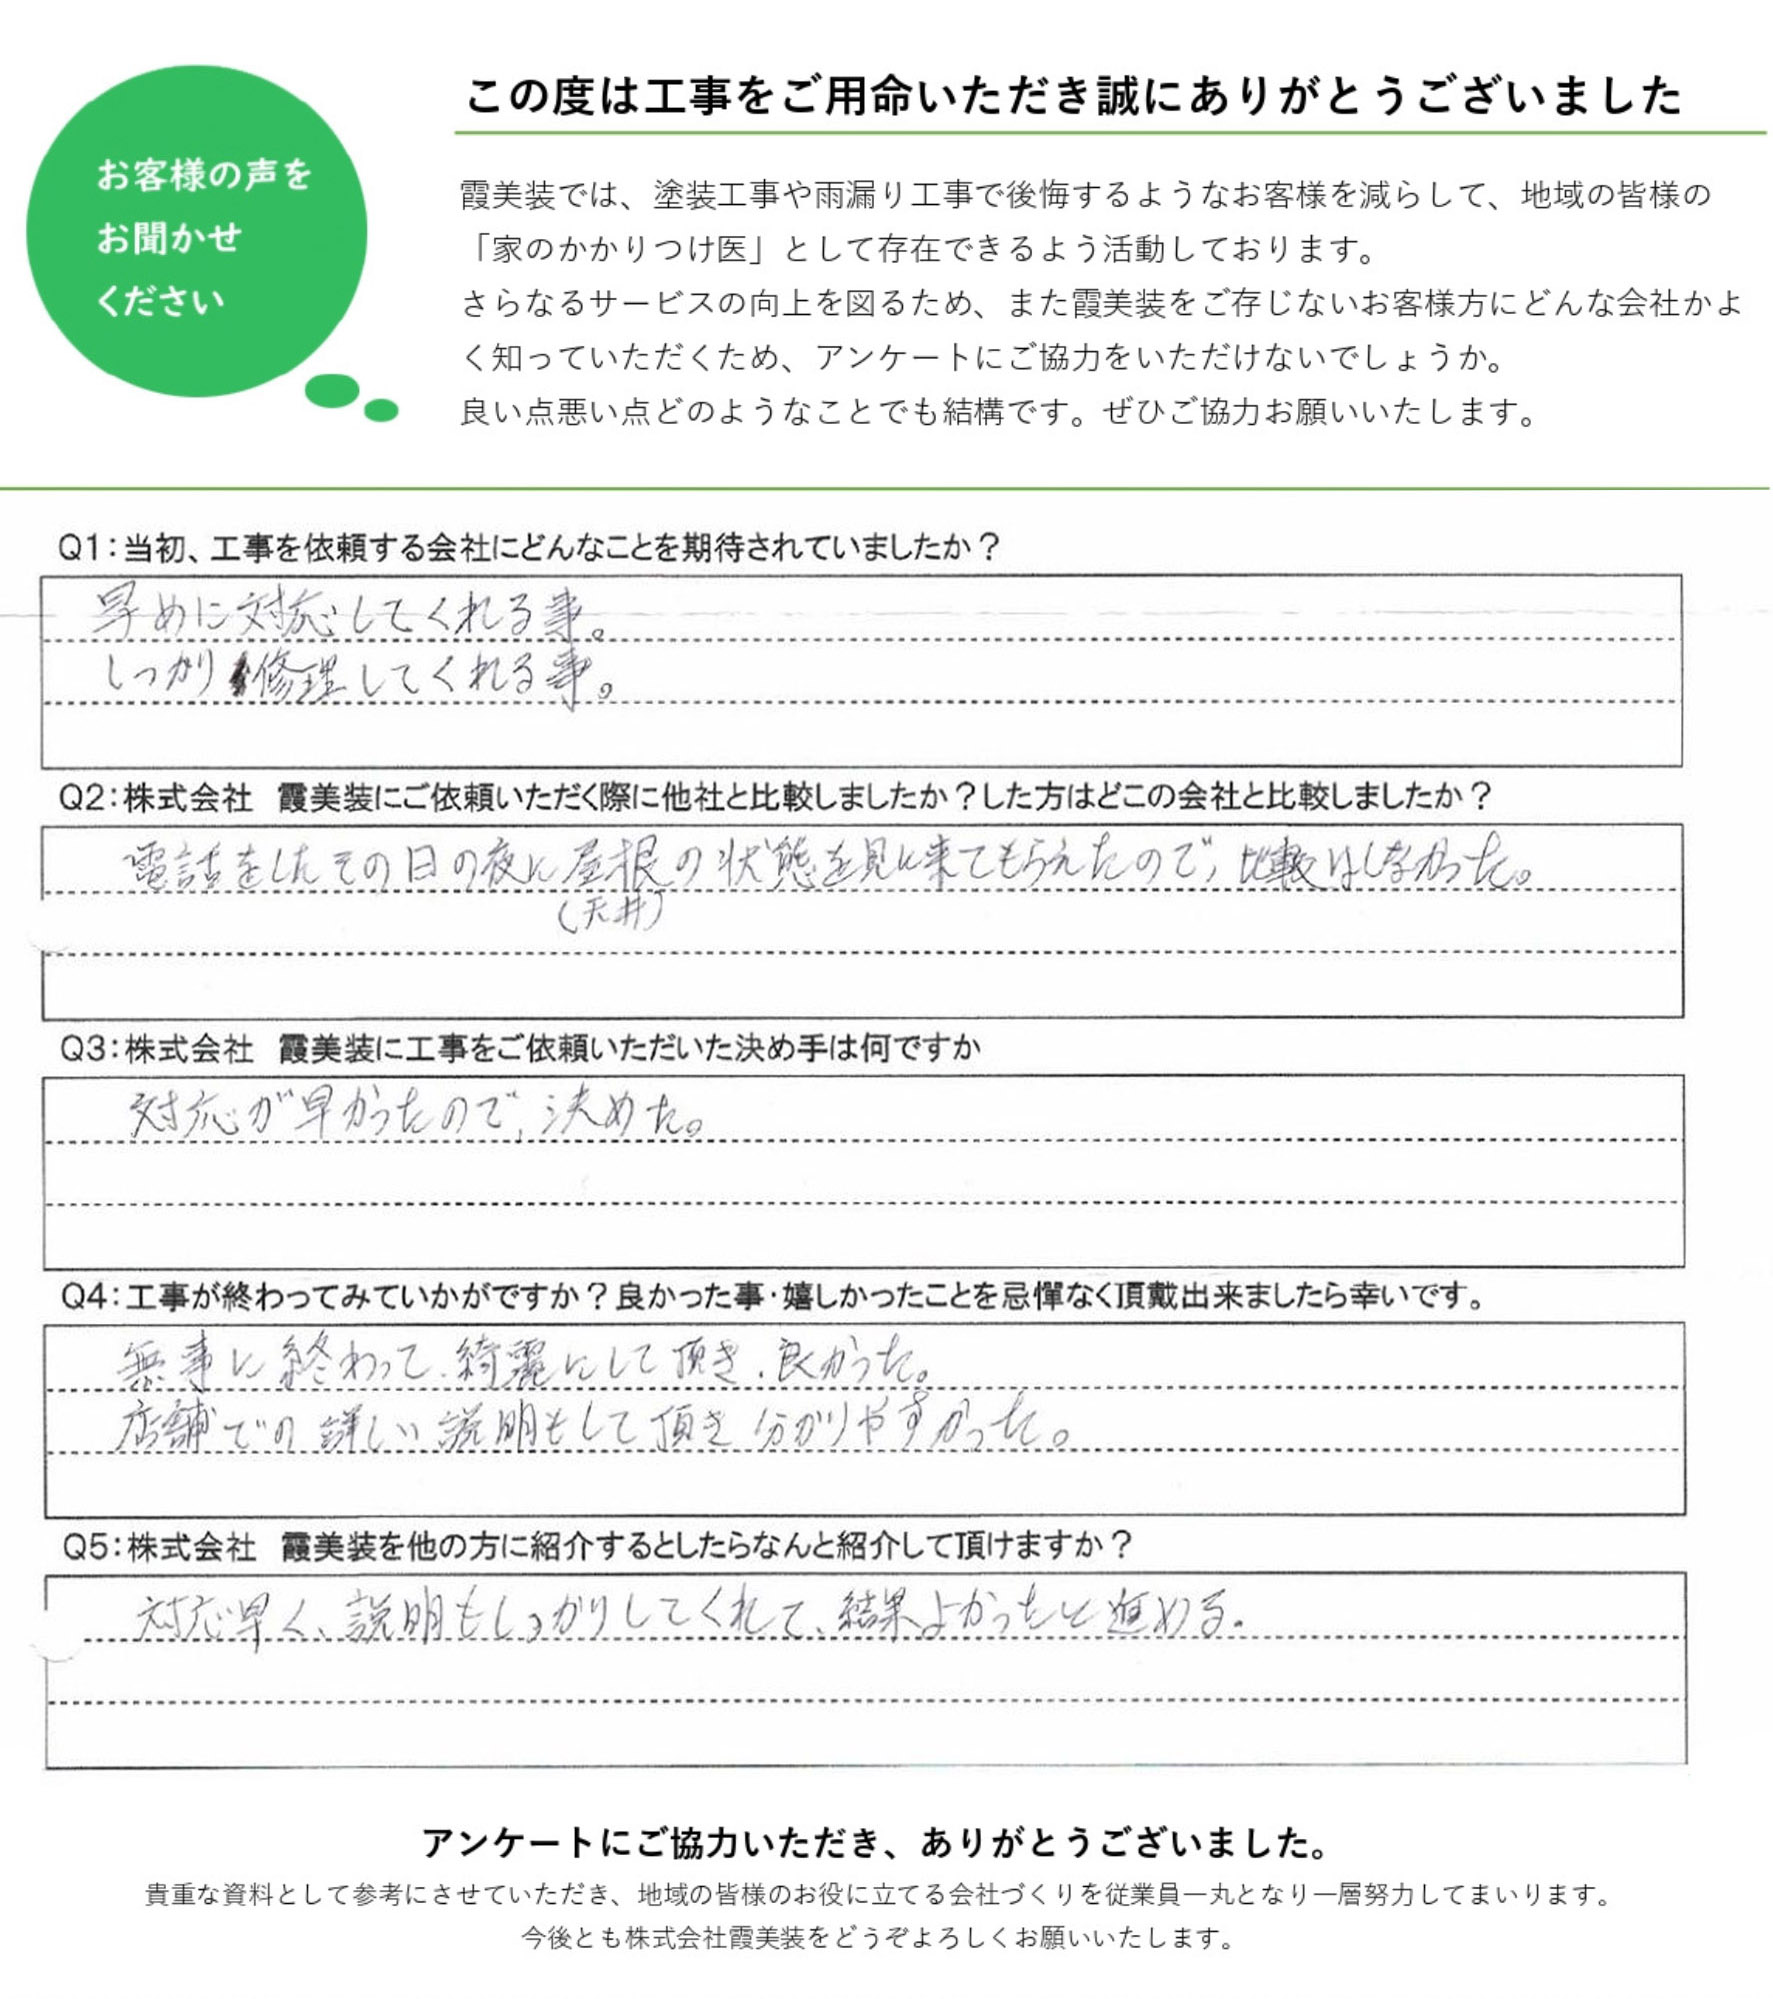 お客様の声を
お聞かせ
ください
この度は工事をご用命いただき誠にありがとうございました
霞美装では、塗装工事や雨漏り工事で後悔するようなお客様を減らして、地域の皆様の
「家のかかりつけ医」として存在できるよう活動しております。
さらなるサービスの向上を図るため、また霞美装をご存じないお客様方にどんな会社かよ
く知っていただくため、アンケートにご協力をいただけないでしょうか。
良い点悪い点どのようなことでも結構です。ぜひご協力お願いいたします。
Q1：当初、工事を依頼する会社にどんなことを期待されていましたか？
早めに対応してくれる事。
しっかり修理してくれる事。
Q2：株式会社 霞美装にご依頼いただく際に他社と比較しましたか？した方はどこの会社と比較しましたか？
電話をしたその日の夜に屋根の状態を見に来てもらえたので、比較はしなかった。
（天井）
Q3：株式会社 霞美装に工事をご依頼いただいた決め手は何ですか
対応が早かったので、決めた。
Q4：工事が終わってみていかがですか？良かった事・嬉しかったことを忌憚なく頂戴出来ましたら幸いです。
無事に終わって、綺麗にして頂き、良かった。
店舗での詳しい説明もして頂き分かりやすかった。
Q5：株式会社 霞美装を他の方に紹介するとしたらなんと紹介して頂けますか？
対応早く、説明もしっかりしてくれて、結果よかったと進める。
アンケートにご協力いただき、ありがとうございました。
貴重な資料として参考にさせていただき、地域の皆様のお役に立てる会社づくりを従業員一丸となり一層努力してまいります。
今後とも株式会社霞美装をどうぞよろしくお願いいたします。